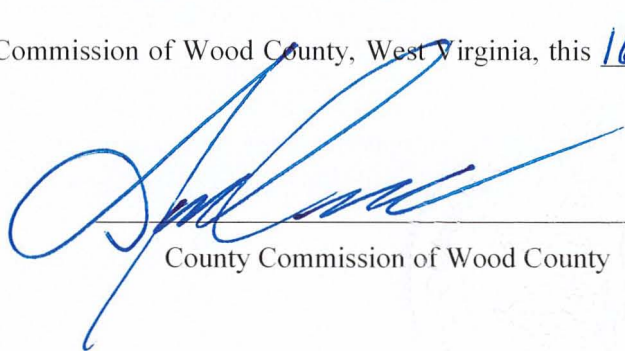 Commission of Wood County, West Virginia, this 16
County Commission of Wood County